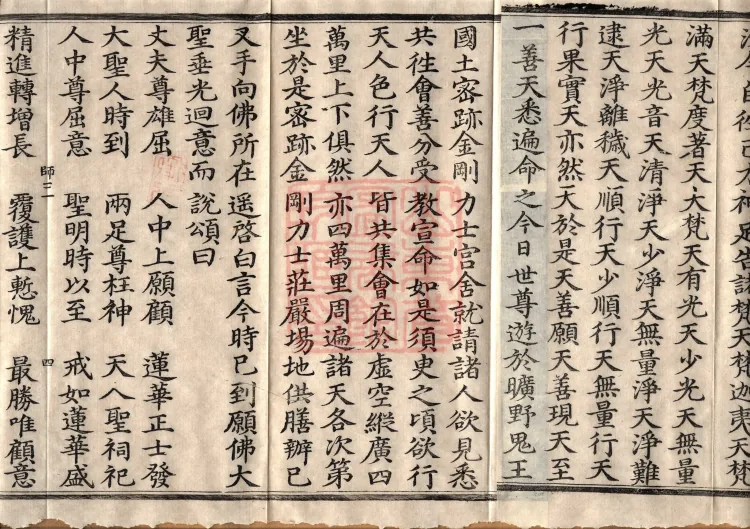 滿天梵度著天大梵天有光天少光天無量
光天光音天清淨天少淨天無量淨天淨難
逮天淨離穢天順行天少順行天無量行天
行果實天亦然天於是天善願天善現天至
一善天悉遍命之今日世尊遊於曠野鬼王
國土密跡金剛力士宮舍就請諸人欲見悉
共往會善分受教宣命如是須臾之頃欲行
天人色行天人皆共集會在於虛空縱廣四
萬里上下俱然亦四萬里周遍諸天各次第
坐於是密跡金剛力士莊嚴場地供膳辦已
叉手向佛所在遥啓白言今時已到願佛大
聖垂光迴意而說頌曰
丈夫尊雄屈 人中上願顧 蓮華正士發
大聖人時到 兩足尊枉神 天人聖祠祀
人中尊屈意 聖明時以至 戒如蓮華盛
師三 四
精進轉增長 覆護上慙愧 最勝唯顧意